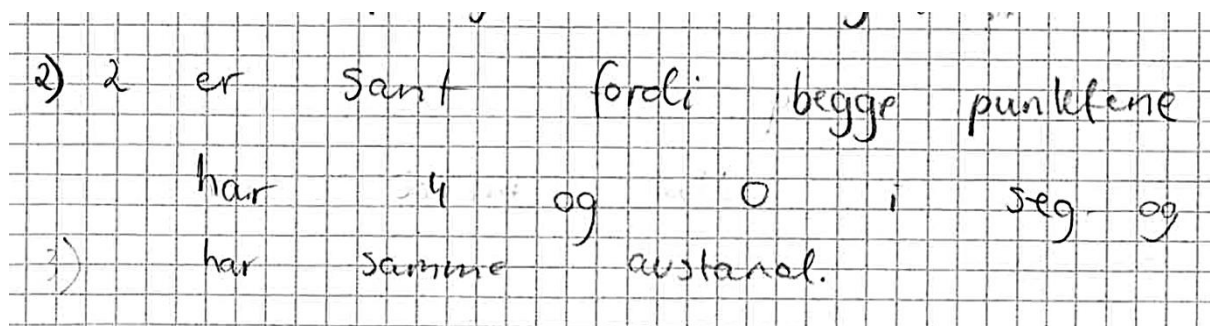 2) 2 er sant fordi begge punktene
har 4 og 0 i seg og
3) har samme avstand.